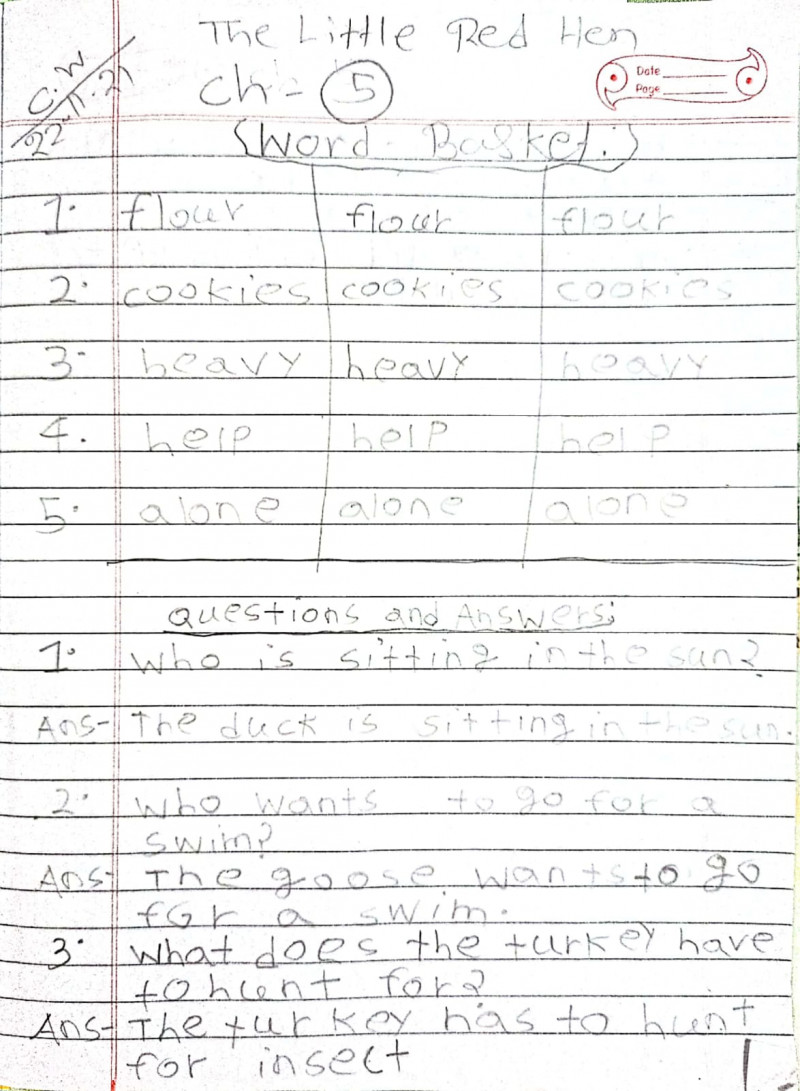 The Little Red Hen
C.W
22.11.21
Ch - 5
Date
Page
{Word Basket:}
1. flour flour flour
2. cookies cookies cookies
3. heavy heavy heavy
4. help help help
5. alone alone alone
Questions and Answers;
1. Who is sitting in the sun?
Ans- The duck is sitting in the sun.
2. Who wants to go for a
swim?
Ans- The goose wants to go
for a swim.
3. What does the turkey have
to hunt for?
Ans- The turkey has to hunt
for insect